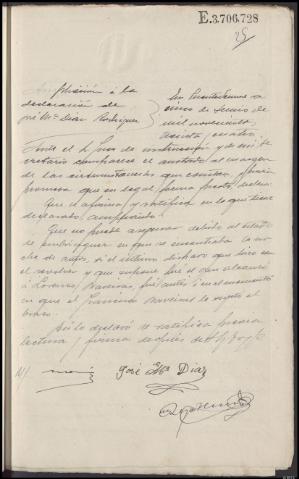 E.3.706.728
25
Ampliación á la
declaración de
José Mª Diaz Rodriguez
En Puentedeume a
cinco de Junio de
mil novecientos
treinta y cuatro.
Ante el Sr Juez de instrucción y de mi Se
cretario comparece el anotado al margen
de las circunstancias que constan, y bajo
promesa que en legal forma presta, declara:
Que se afirma y ratifica en lo que tiene
declarado, ampliando:
Que no puede asegurar debido al estado
de embriaguez en que se encontraba la no
che de autos, si el último disparo que hizo con
el revolver y que supone fué el que alcanzó
á Lorenzo Barreiras, fué antes ó en el momento
en que el Francisco Barreiras le sujetó el
brazo.
Así lo declaró se ratifica previa
lectura y firma después de S.Sª doy fé
José Mª Diaz